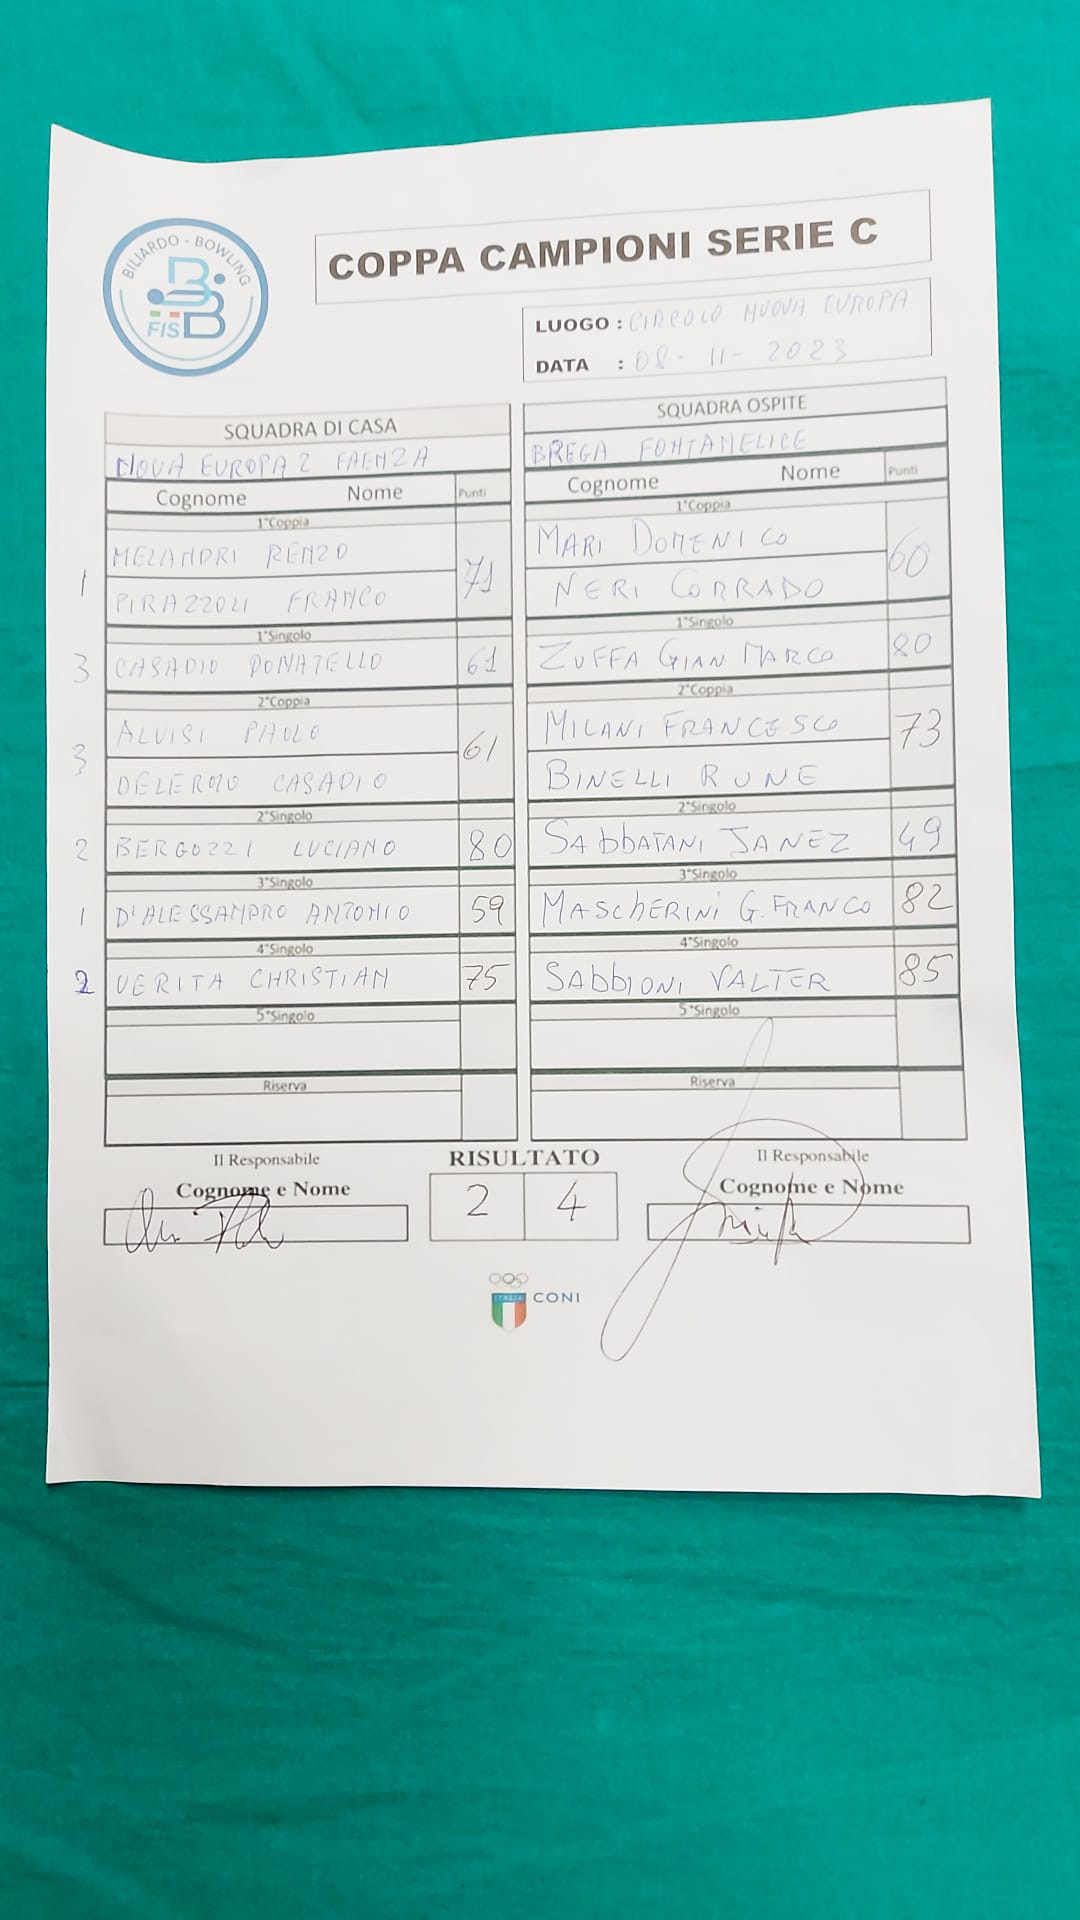 BILIARDO - BOWLING
FISBB
COPPA CAMPIONI SERIE C
LUOGO : CIRCOLO NUOVA EUROPA
DATA : 08 - 11 - 2023
SQUADRA DI CASA
NOVA EUROPA 2 FAENZA
Cognome Nome Punti
1°Coppia
1 MELANDRI RENZO 71
PIRAZZOLI FRANCO
1°Singolo
3 CASADIO DONATELLO 61
2°Coppia
3 ALVISI PAOLO 61
DELERMO CASADIO
2°Singolo
2 BERGOZZI LUCIANO 80
3°Singolo
1 D'ALESSANDRO ANTONIO 59
4°Singolo
2 VERITA CHRISTIAN 75
5°Singolo
Riserva
SQUADRA OSPITE
BREGA FONTANELICE
Cognome Nome Punti
1°Coppia
MARI DOMENICO 60
NERI CORRADO
1°Singolo
ZUFFA GIAN MARCO 80
2°Coppia
MILANI FRANCESCO 73
BINELLI RUNE
2°Singolo
SAbbATANI JANEZ 49
3°Singolo
MASChERINI G. FRANCO 82
4°Singolo
SAbbIONI VALTER 85
5°Singolo
Riserva
Il Responsabile
Cognome e Nome
RISULTATO
2 4
Il Responsabile
Cognome e Nome
ITALIA CONI